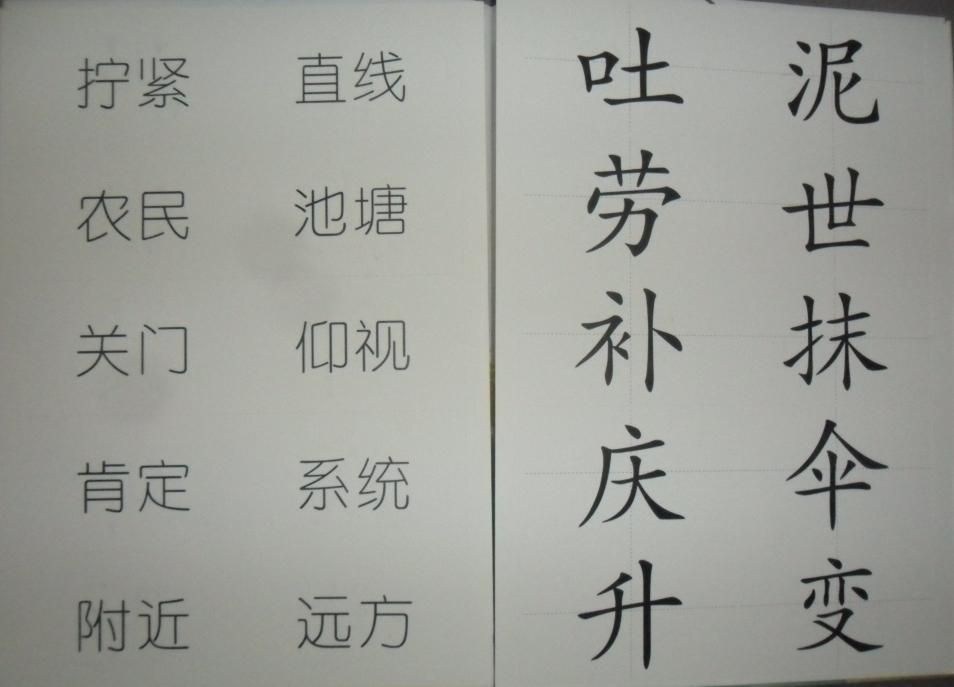 拧紧 直线
农民 池塘
关门 仰视
肯定 系统
附近 远方
吐 泥
劳 世
补 抹
庆 伞
升 变